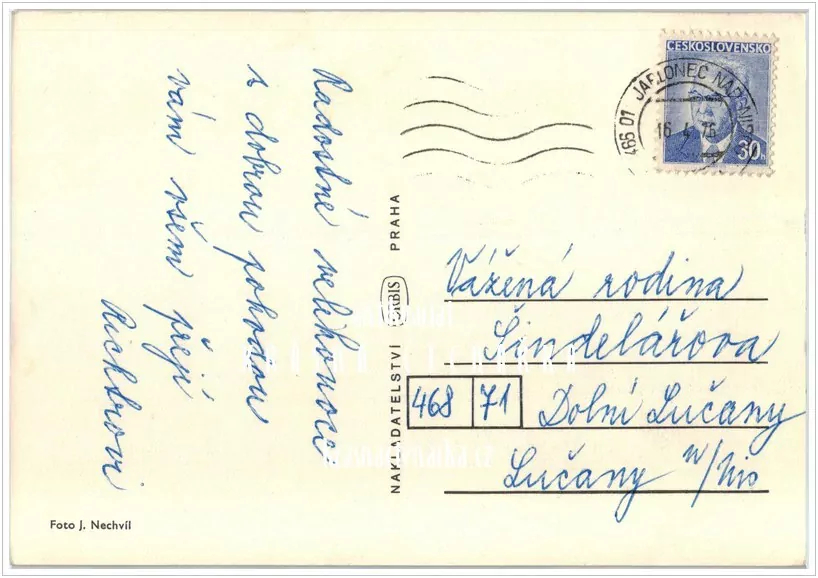 Radostné velikonoce
s dobrou pohodou
vám všem přejí
Richtrovi
Foto J. Nechvíl
NAKLADATELSTVÍ ORBIS PRAHA
ČESKOSLOVENSKO
30 h
466 01 JABLONEC NAD NIS
16. 4. 76
Vážená rodina
Šindelářova
468 71 Dolní Lučany
Lučany n/Nis